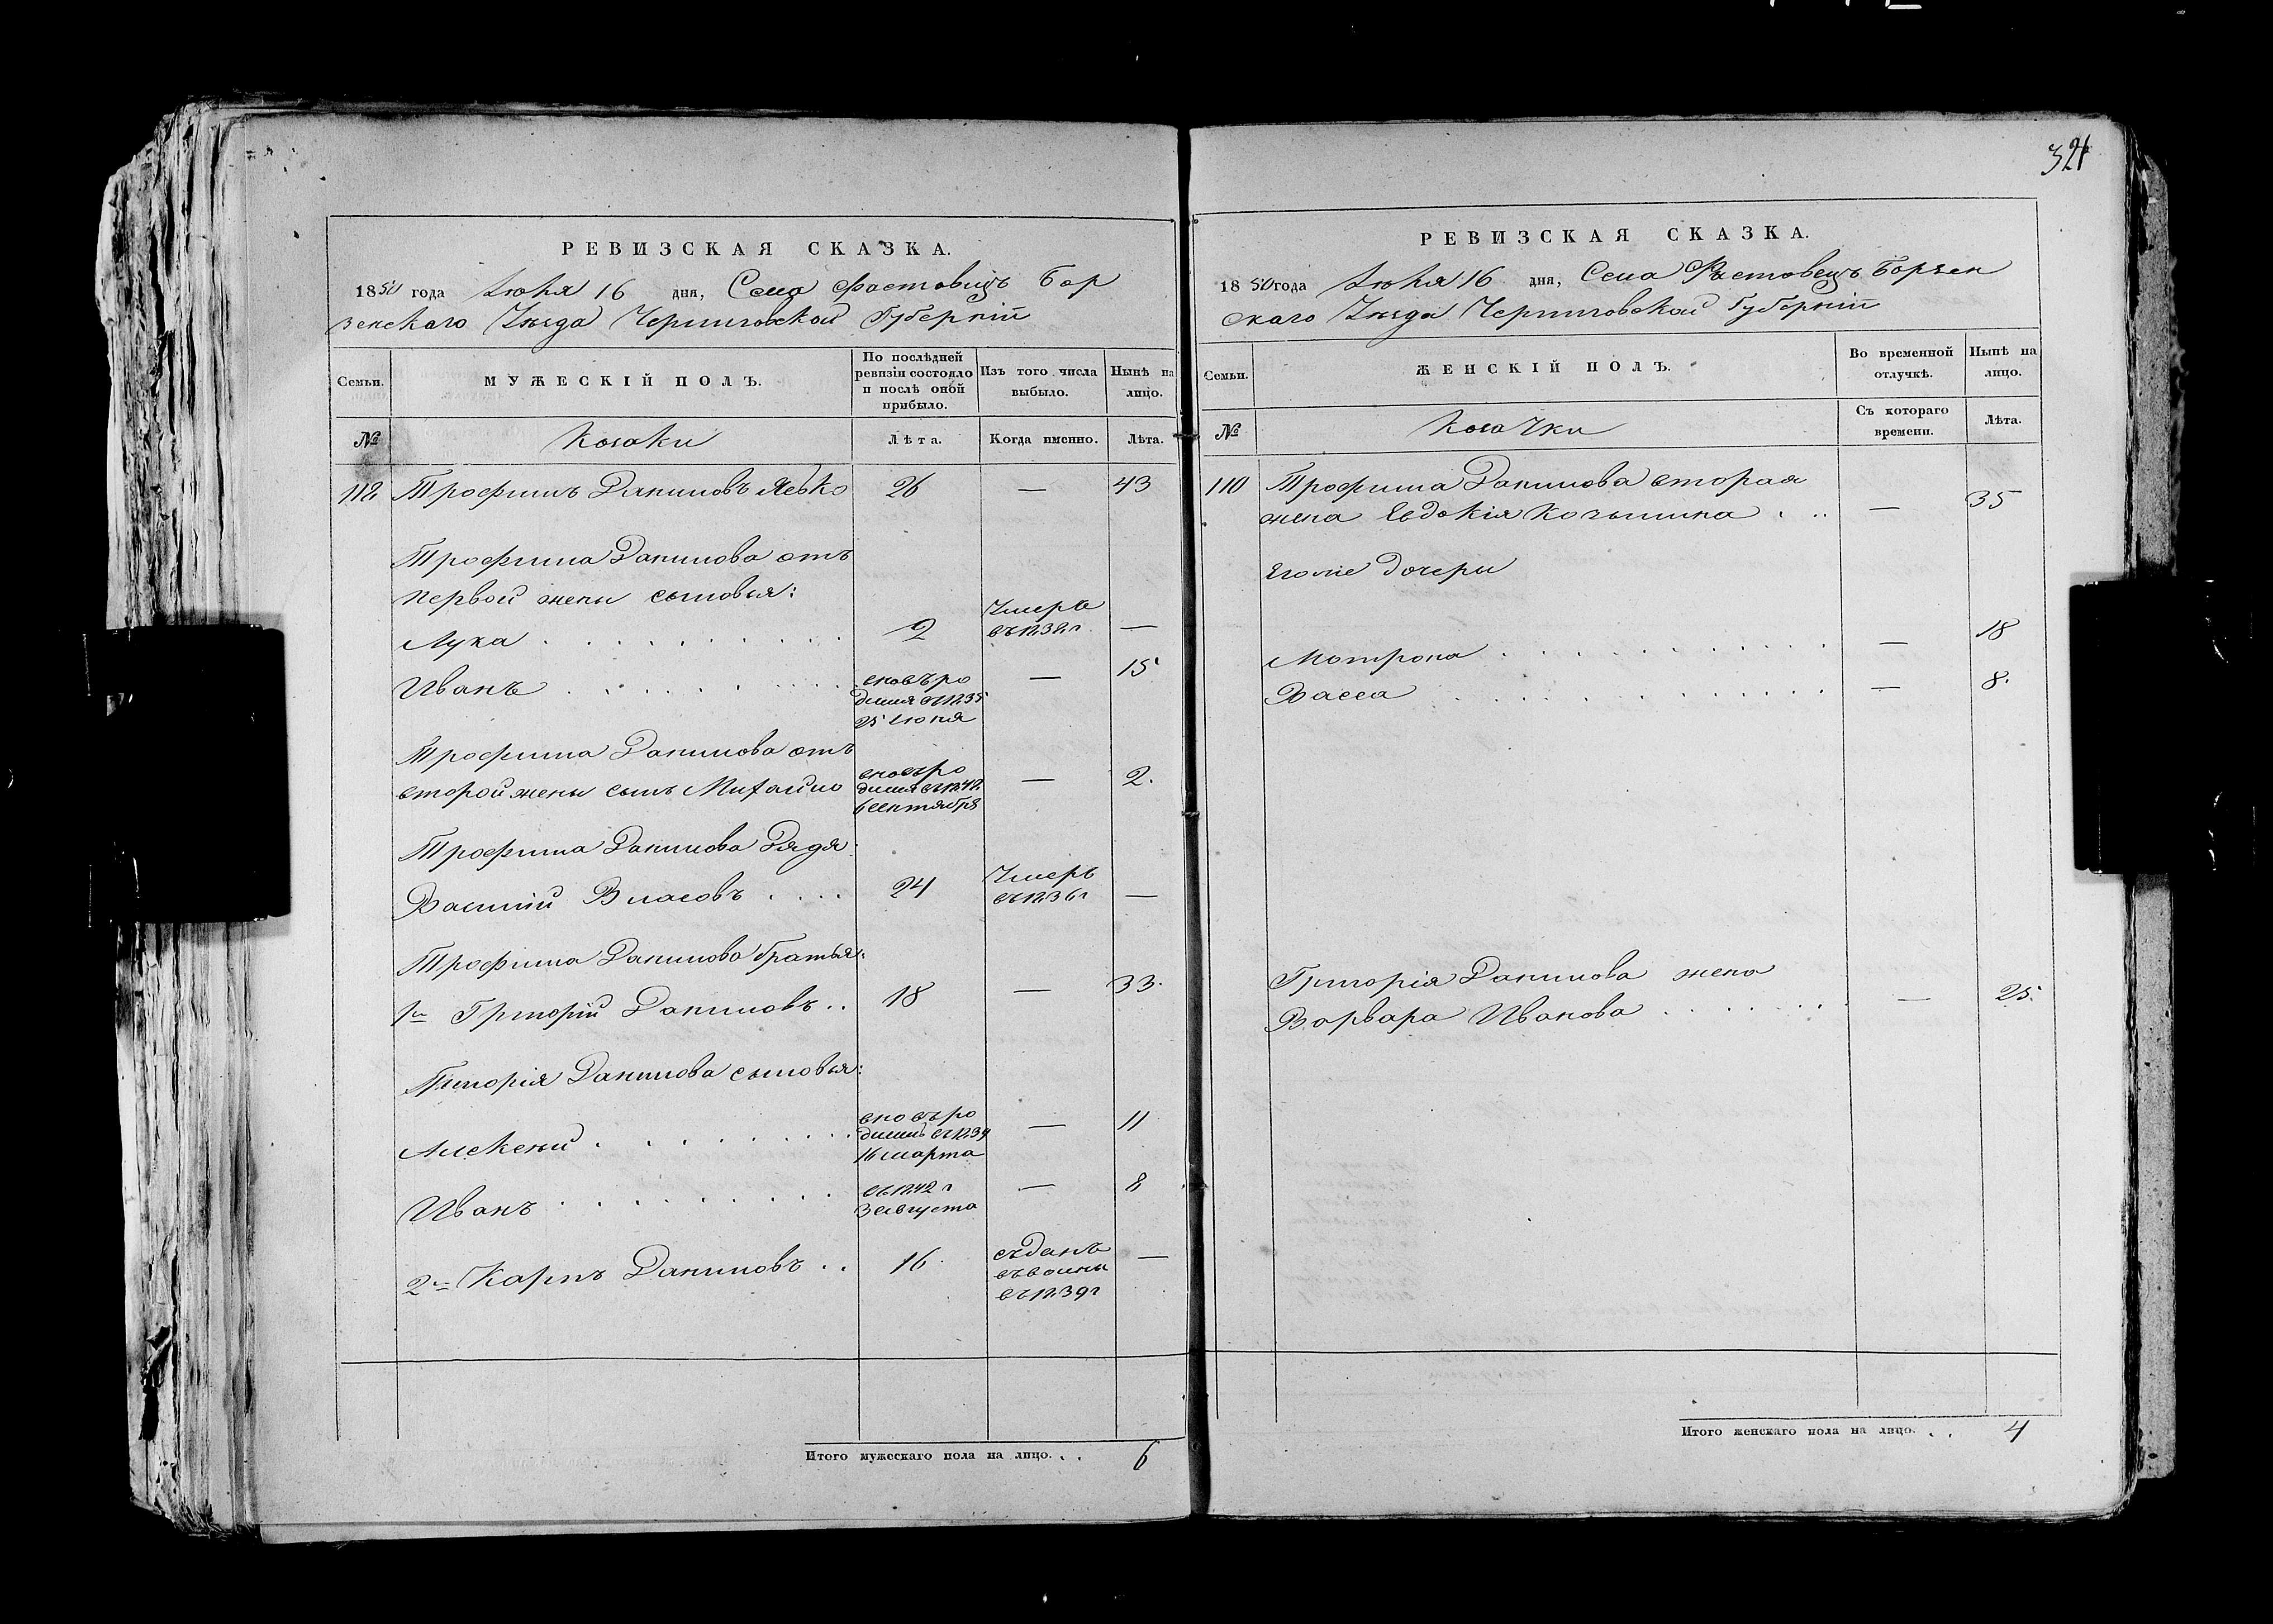 321
РЕВИЗСКАЯ СКАЗКА.
1850 года Июня 16 дня, Села Фастовецъ Бор
зенскаго Уезда Черниговской Губерніи
Семьи.
МУЖЕСКІЙ ПОЛЪ.
По послѣдней ревизіи состояло и послѣ оной прибыло.
Изъ того числа выбыло.
Нынѣ на лицо.
№
Козаки
Лѣта.
Когда именно.
Лѣта.
112 Трофимъ Даниловъ Явко 26 — 43
Трофима Данилова отъ
первой жены сыновья:
Лука . . . . . . . . . 2 Умеръ въ 1832 г —
Иванъ . . . . . . . . вновь ро
дился въ 1835
25 Июня — 15
Трофима Данилова отъ
второй жены сынъ Михайло вновь ро
дился въ 1842
6 Сентября — 2.
Трофима Данилова Дядя
Василій Власовъ . . . . 24 Умеръ въ 1836 г —
Трофима Данилова братья:
1й Григорій Даниловъ . . 18 — 33.
Григорія Данилова сыновья:
Алексѣй . . . . . . . . вновь ро
дился въ 1839
16 марта — 11
Иванъ . . . . . . . . . въ 1842 г
3 августа — 8
2й Карпъ Даниловъ . . 16. сданъ
въ воины
въ 1839 г —
Итого мужескаго пола на лицо. . . 6
РЕВИЗСКАЯ СКАЗКА.
1850 года Июня 16 дня, Села Фастовецъ Борзен
скаго Уезда Черниговской Губерніи
Семьи.
ЖЕНСКІЙ ПОЛЪ.
Во временной отлучкѣ.
Нынѣ на лицо.
№
Козачки
Съ котораго времени.
Лѣта.
110 Трофима Данилова вторая
жена Евдокія Козьмина . . . — 35
Егоже дочери
Мотрона . . . . . . . . . . . — 18
Васса . . . . . . . . . . . — 8.
Григорія Данилова жена
Варвара Иванова . . . . . . . — 25.
Итого женскаго пола на лицо. . . 4